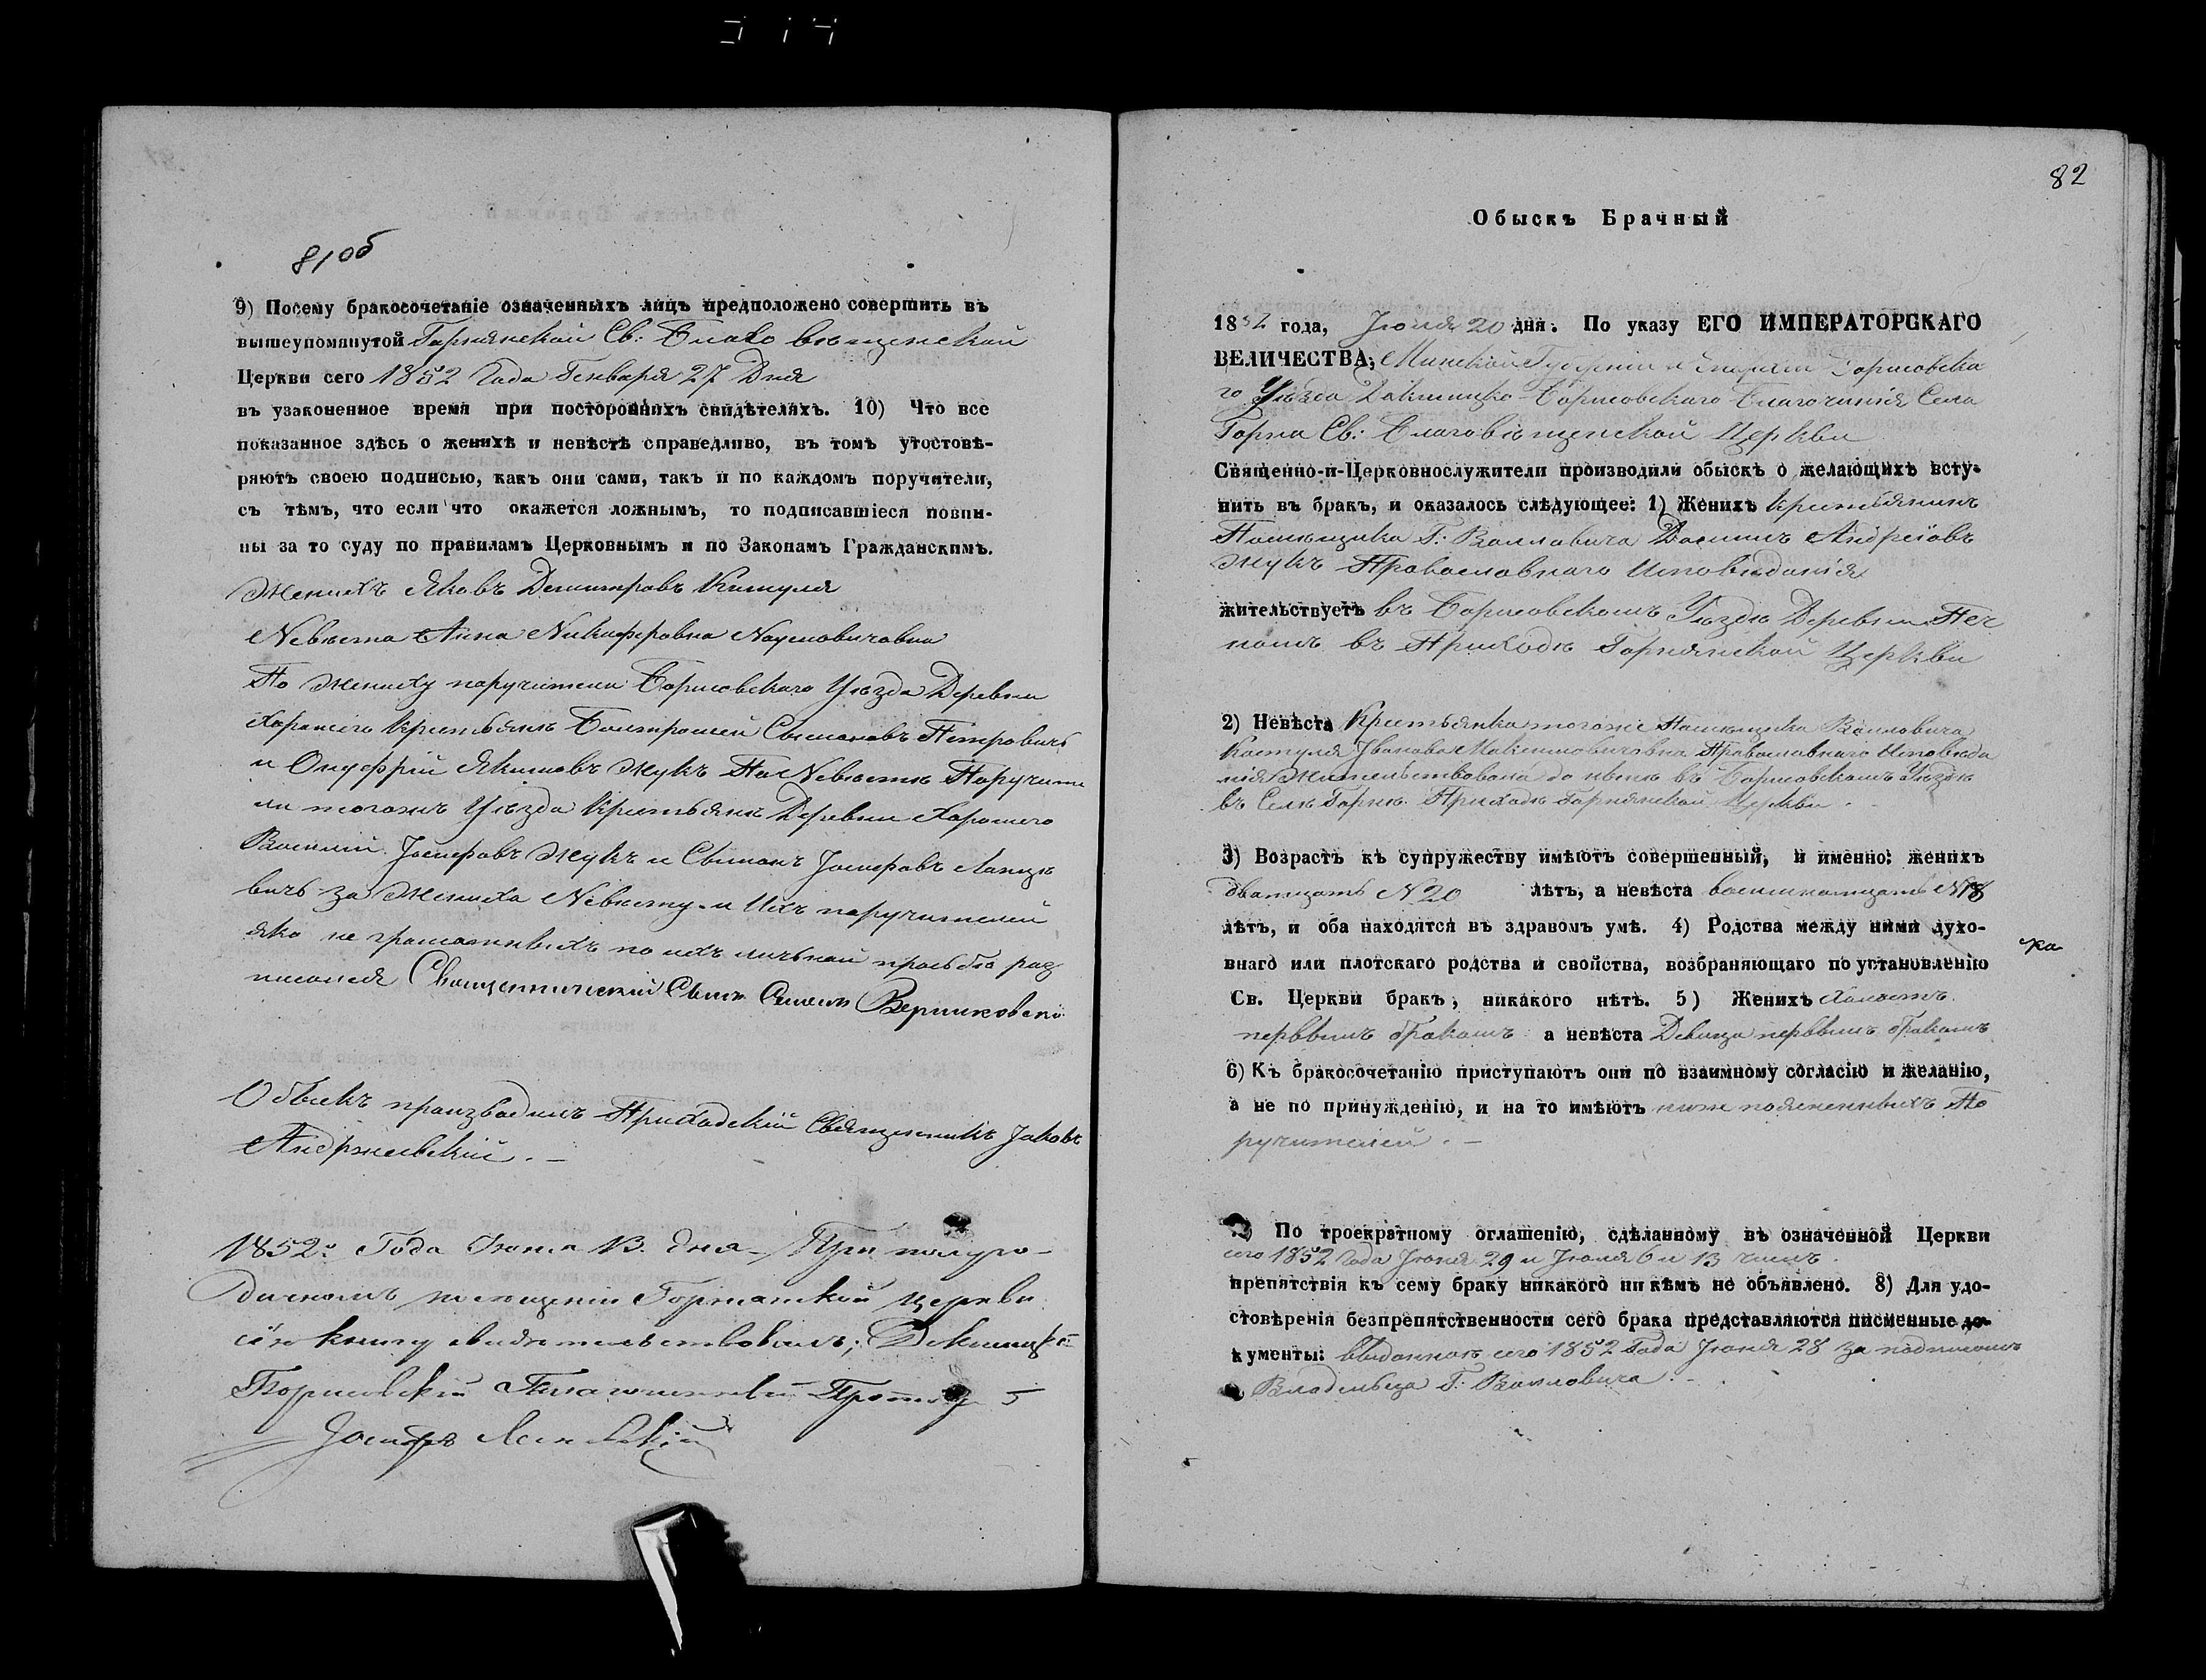 81об
9) Посему бракосочетаніе означенныхъ лицъ предположено совершить въ
вышеупомянутой Горнянской Св: Благовѣщенской
Церкви сего 1852 Года Генваря 27 Дня
въ узаконенное время при постороннихъ свидѣтеляхъ. 10) Что все
показанное здѣсь о женихѣ и невѣстѣ справедливо, въ томъ утостовѣ-
ряютъ своею подписью, какъ они сами, такъ и по каждомъ поручители,
съ тѣмъ, что если что окажется ложнымъ, то подписавшіеся повин-
ны за то суду по правиламъ Церковнымъ и по Законамъ Гражданскимъ.
Женихъ Яковъ Демитровъ
Невѣста Анна Никифоровна Наумовичовна
По Жениху поручители Борисовскаго Уѣзда Деревни
Харошего Крестьяне Симановъ Петровичъ
и Онуфрій Якимовъ Жукъ По Невѣстѣ Поручите
ли тогожъ Уѣзда Крестьяне Деревни Харошего
Василій Іосифовъ Жукъ и Сымонъ Іосифовъ
вичъ за Жениха Невѣсту и Ихъ поручителей
яко не граматныхъ по ихъ личьной прозьбѣ рас
писался Священническій Сынъ Вериниковскій
Обыскъ производилъ Приходскій Священникъ Іаковъ
Андржеевскій. —
1852го Года Іюня 13. дня — При полуго-
дичномъ посещеніи Горнянской церкви
сію книгу свидѣтельствовалъ; Докшицко-
Борисовскій Благочинный
Іосифъ
82
Обыскъ Брачный
1852 года, Іюля 20 дня. По указу ЕГО ИМПЕРАТОРСКАГО
ВЕЛИЧЕСТВА, Минской Губерніи и Епархіи Борисовска
го Уѣзда Докшицко-Борисовскаго Благочинія Села
Горна Св: Благовѣщенской Церкви
Священно-и-Церковнослужители производили обыскъ о желающихъ всту-
пить въ брак, и оказалось слѣдующее: 1) Женихъ Крестьянинъ
Помѣщика Г: Воловича Андреіовъ
Жукъ Православнаго Исповѣданія
жительствуетъ въ Борисовскомъ Уѣздѣ Деревни
въ Приходѣ Горнянской Церкви
2) Невѣста Крестьянка тогоже Помѣщика Воловича
Иванова Максимовичовна Православнаго Исповѣда
нія Жительствовала до нынѣ въ Борисовскомъ Уѣздѣ
въ Селѣ Горнѣ Приходѣ Горнянской Церкви. —
3) Возрастъ къ супружеству имѣютъ совершенный, и именно: женихъ
дватцать N 20 лѣтъ, а невѣста восимнатцать N 18
лѣтъ, и оба находятся въ здравомъ умѣ. 4) Родства между ними духо-
внаго или плотскаго родства и свойства, возбраняющаго по установленію
Св. Церкви бракъ, никакого нѣтъ. 5) Женихъ Холостъ
первымъ бракомъ а невѣста Девица первымъ бракомъ
6) Къ бракосочетанію приступаютъ они по взаимному согласію и желанію,
а не по принужденію, и на то имѣютъ По
ручителей. —
По троекратному оглашенію, сдѣланному въ означенной Церкви
сего 1852 Года Іюня 29 и Іюля 6 и 13 чиселъ
препятствія къ сему браку никакого ни кѣмъ не объявлено. 8) Для удо-
стовѣренія безпрепятственности сего брака представляются писменные до-
кументы: выданное сего 1852 Года Іюня 28 за подписомъ
Владельца Г: Воловича. —